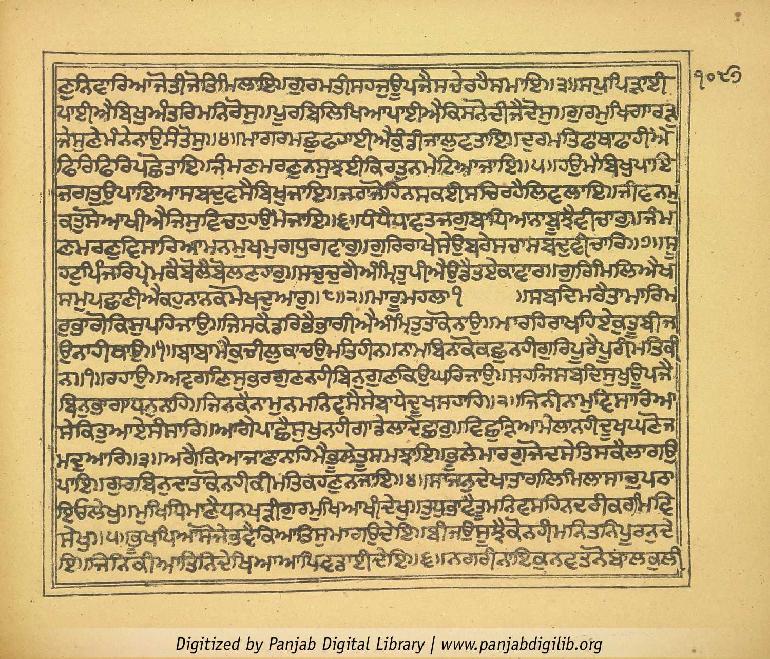 ਣੁਨਿਵਾਰਿਆਜੋਤੀਜੋਤਿਮਿਲਾਇ॥ਗੁਰਮਤੀਸਹਜੁਊਪਜੈਸਚੇਰਹੈਸਮਾਇ॥੩॥ਸਪੁਪਿੜਾਈ
੧੦੯੭
ਪਾਈਐਬਿਖੁਅੰਤਰਿਮਨਿਰੋਸੁ॥ਪੂਰਬਿਲਿਖਿਆਪਾਈਐਕਿਸਨੋਦੀਜੈਦੋਸੁ॥ਗੁਰਮੁਖਿਗਾਰੜੁ
ਜੇਸੁਣੇਮੰਨੇਨਾਉਸੰਤੋਸੁ॥੪॥ਮਾਗਰਮਛੁਫਹਾਈਐਕੁੰਡੀਜਾਲੁਵਤਾਇ॥ਦੁਰਮਤਿਫਾਥਾਫਾਹੀਐ
ਫਿਰਿਫਿਰਿਪਛੋਤਾਇ॥ਜੰਮਣਮਰਣੁਨਸੁਝਈਕਿਰਤੁਨਮੇਟਿਆਜਾਇ॥੫॥ਹਉਮੈਬਿਖੁਪਾਇ
ਜਗਤੁਉਪਾਇਆਸਬਦੁਵਸੈਬਿਖੁਜਾਇ॥ਜਰਾਜੋਹਿਨਸਕਈਸਚਿਰਹੈਲਿਵਲਾਇ॥ਜੀਵਨਮੁ
ਕਤੁਸੋਆਖੀਐਜਿਸੁਵਿਚਹੁਹਉਮੈਜਾਇ॥੬॥ਧੰਧੈਧਾਵਤਜਗੁਬਾਧਿਆਨਾਬੂਝੈਵੀਚਾਰੁ॥ਜੰਮ
ਣਮਰਣੁਵਿਸਾਰਿਆਮਨਮੁਖਮੁਗਧੁਗਵਾਰੁ॥ਗੁਰਿਰਾਖੇਸੇਉਬਰੇਸਚਾਸਬਦੁਵੀਚਾਰਿ॥੭॥ਸੂ
ਹਟੁਪਿੰਜਰਿਪ੍ਰੇਮਕੈਬੋਲੈਬੋਲਣਹਾਰੁ॥ਸਚੁਚੁਗੈਅੰਮ੍ਰਿਤੁਪੀਐਉਡੈਤਏਕਾਵਾਰ॥ਗੁਰਿਮਿਲਿਐਖ
ਸਮੁਪਛਾਣੀਐਕਹੁਨਾਨਕਮੋਖਦੁਆਰੁ॥੮॥੨॥ਮਾਰੂਮਹਲਾ੧॥ਸਬਦਿਮਰੈਤਾਮਾਰਿਮ
ਰੁਭਾਗੋਕਿਸੁਪਹਿਜਾਉ॥ਜਿਸਕੈਡਰਿਭੈਭਾਗੀਐਅੰਮ੍ਰਿਤੁਤਾਕੋਨਾਉ॥ਮਾਰਹਿਰਾਖਹਿਏਕੁਤੂਬੀਜ
ਉਨਾਹੀਥਾਉ॥੧॥ਬਾਬਾਮੈਕੁਚੀਲੁਕਾਚਉਮਤਿਹੀਨ॥ਨਾਮਬਿਨਾਕੋਕਛੁਨਹੀਗੁਰਿਪੂਰੈਪੂਰੀਮਤਿਕੀ
ਨ॥੧॥ਰਹਾਉ॥ਅਵਗਣਿਸੁਭਰਗੁਣਨਹੀਬਿਨੁਗੁਣਕਿਉਘਰਿਜਾਉ॥ਸਹਜਿਸਬਦਿਸੁਖੁਊਪਜੈ
ਬਿਨੁਭਾਗਾਧਨੁਨਾਹਿ॥ਜਿਨਕੈਨਾਮੁਨਮਨਿਵਸੈਸੇਬਾਧੇਦੂਖਸਹਾਹਿ॥੨॥ਜਿਨੀਨਾਮੁਵਿਸਾਰਿਆ
ਸੇਕਿਤੁਆਏਸੰਸਾਰਿ॥ਆਗੈਪਾਛੈਸੁਖੁਨਹੀਗਾਡੇਲਾਦੇਛਾਰੁ॥ਵਿਛੁੜਿਆਮੇਲਾਨਹੀਦੂਖੁਘਣੋਜ
ਮਦੁਆਰਿ॥੩॥ਅਗੈਕਿਆਜਾਣਾਨਾਹਿਮੈਭੂਲੇਤੂਸਮਝਾਇ॥ਭੂਲੇਮਾਰਗੁਜੋਦਸੇਤਿਸਕੈਲਾਗਉ
ਪਾਇ॥ਗੁਰਬਿਨੁਦਾਤਾਕੋਨਹੀਕੀਮਤਿਕਹਣੁਨਜਾਇ॥੪॥ਸਾਜਨੁਦੇਖਾਤਾਗਲਿਮਿਲਾਸਾਚੁਪਠਾ
ਇਓਲੇਖੁ॥ਮੁਖਿਧਿਮਾਣੈਧਨਖੜੀਗੁਰਮੁਖਿਆਖੀਦੇਖੁ॥ਤੁਧੁਭਾਵੈਤੂਮਨਿਵਸਹਿਨਦਰੀਕਰਮਿਵਿ
ਸੇਖੁ॥੫॥ਭੂਖਪਿਆਸੋਜੇਭਵੈਕਿਆਤਿਸੁਮਾਗਉਦੇਇ॥ਬੀਜਉਸੂਝੈਕੋਨਹੀਮਨਿਤਨਿਪੂਰਨੁਦੇ
ਇ॥ਜਿਨਿਕੀਆਤਿਨਿਦੇਖਿਆਆਪਿਵਡਾਈਦੇਇ॥੬॥ਨਗਰੀਨਾਇਕੁਨਵਤਨੋਬਾਲਕੁਲੀ
Digitized by Panjab Digital Library | www.panjabdigilib.org